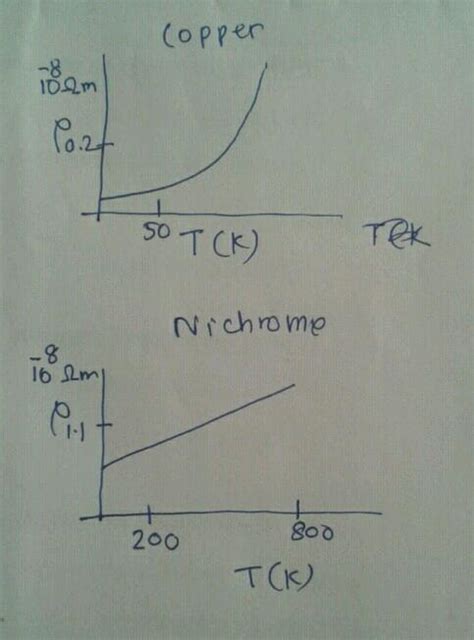 Copper
10⁻⁸ Ωm
ρ 0.2
50
T (K)
Nichrome
10⁻⁸ Ωm
ρ 1.1
200
800
T (K)